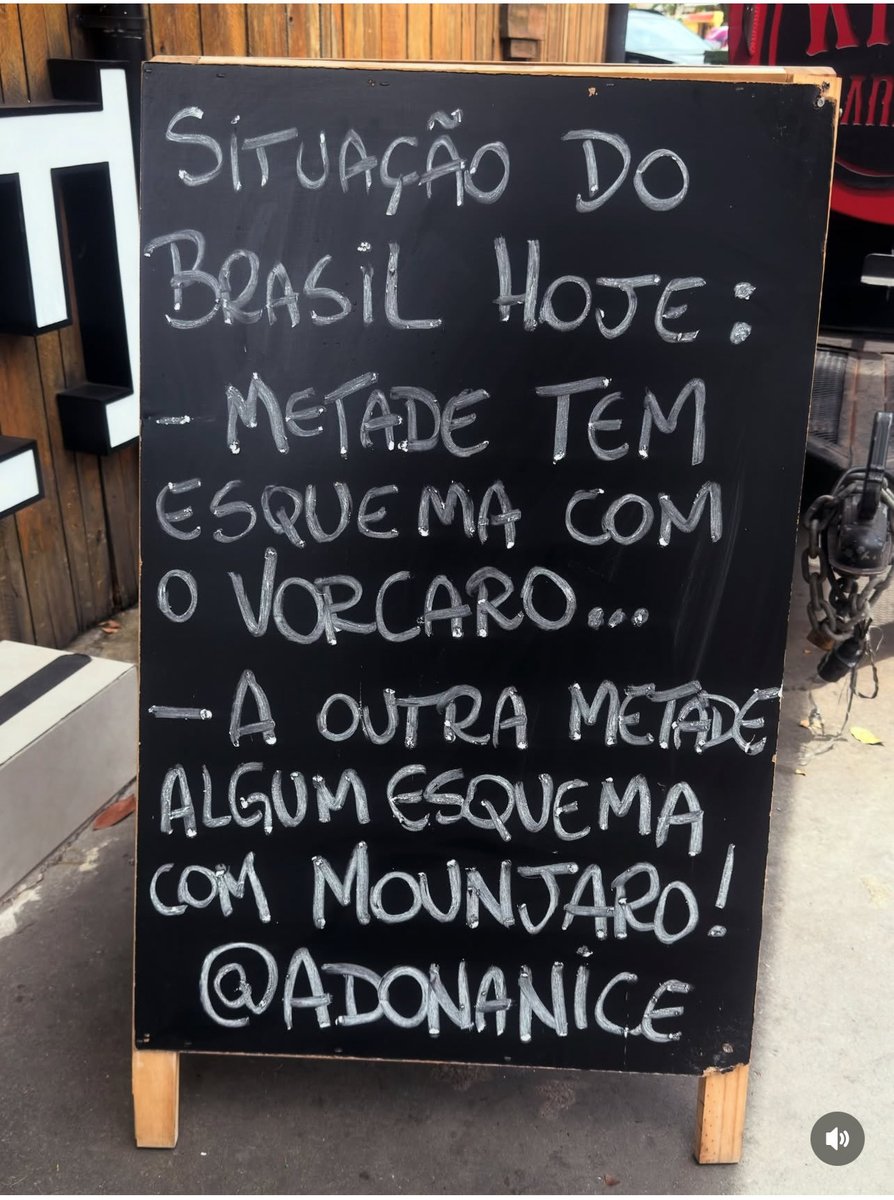 SITUAÇÃO DO
BRASIL HOJE:
- METADE TEM
ESQUEMA COM
O VORCARO...
- A OUTRA METADE
ALGUM ESQUEMA
COM MOUNJARO!
@ADONANICE